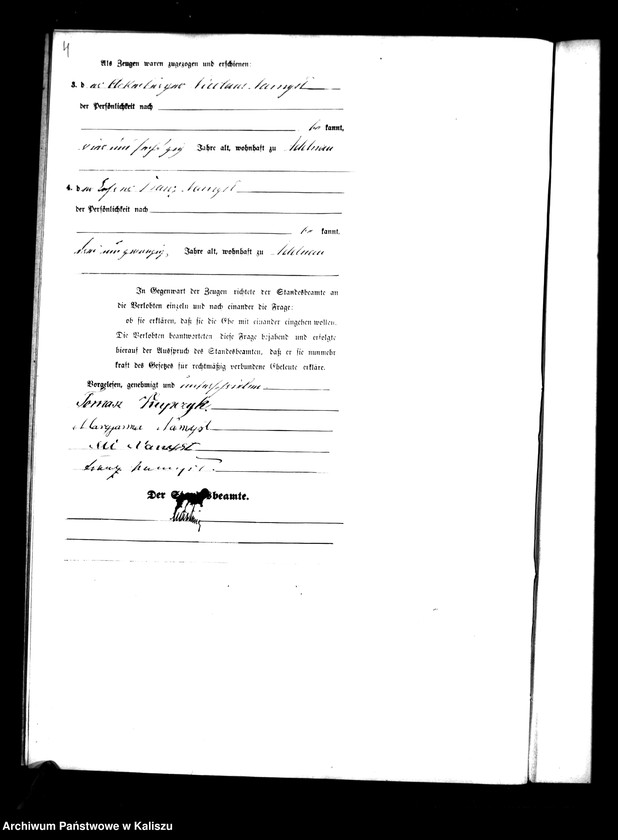 4
Als Zeugen waren zugezogen und erschienen:
3. der Ackerbürger Nicolaus Namysl
der Persönlichkeit nach
be kannt,
Jahre alt, wohnhaft zu Adelnau
4. der Franz Namysl
der Persönlichkeit nach
be kannt.
Jahre alt, wohnhaft zu Adelnau
In Gegenwart der Zeugen richtete der Standesbeamte an
die Verlobten einzeln und nach einander die Frage:
ob sie erklären, daß sie die Ehe mit einander eingehen wollen.
Die Verlobten beantworteten diese Frage bejahend und erfolgte
hierauf der Ausspruch des Standesbeamten, daß er sie nunmehr
kraft des Gesetzes für rechtmäßig verbundene Eheleute erkläre.
Vorgelesen, genehmigt und unterschrieben
Tomasz
Maryanna Namysl
Namysl
Franz Namysl
Der Standesbeamte.
Archiwum Państwowe w Kaliszu